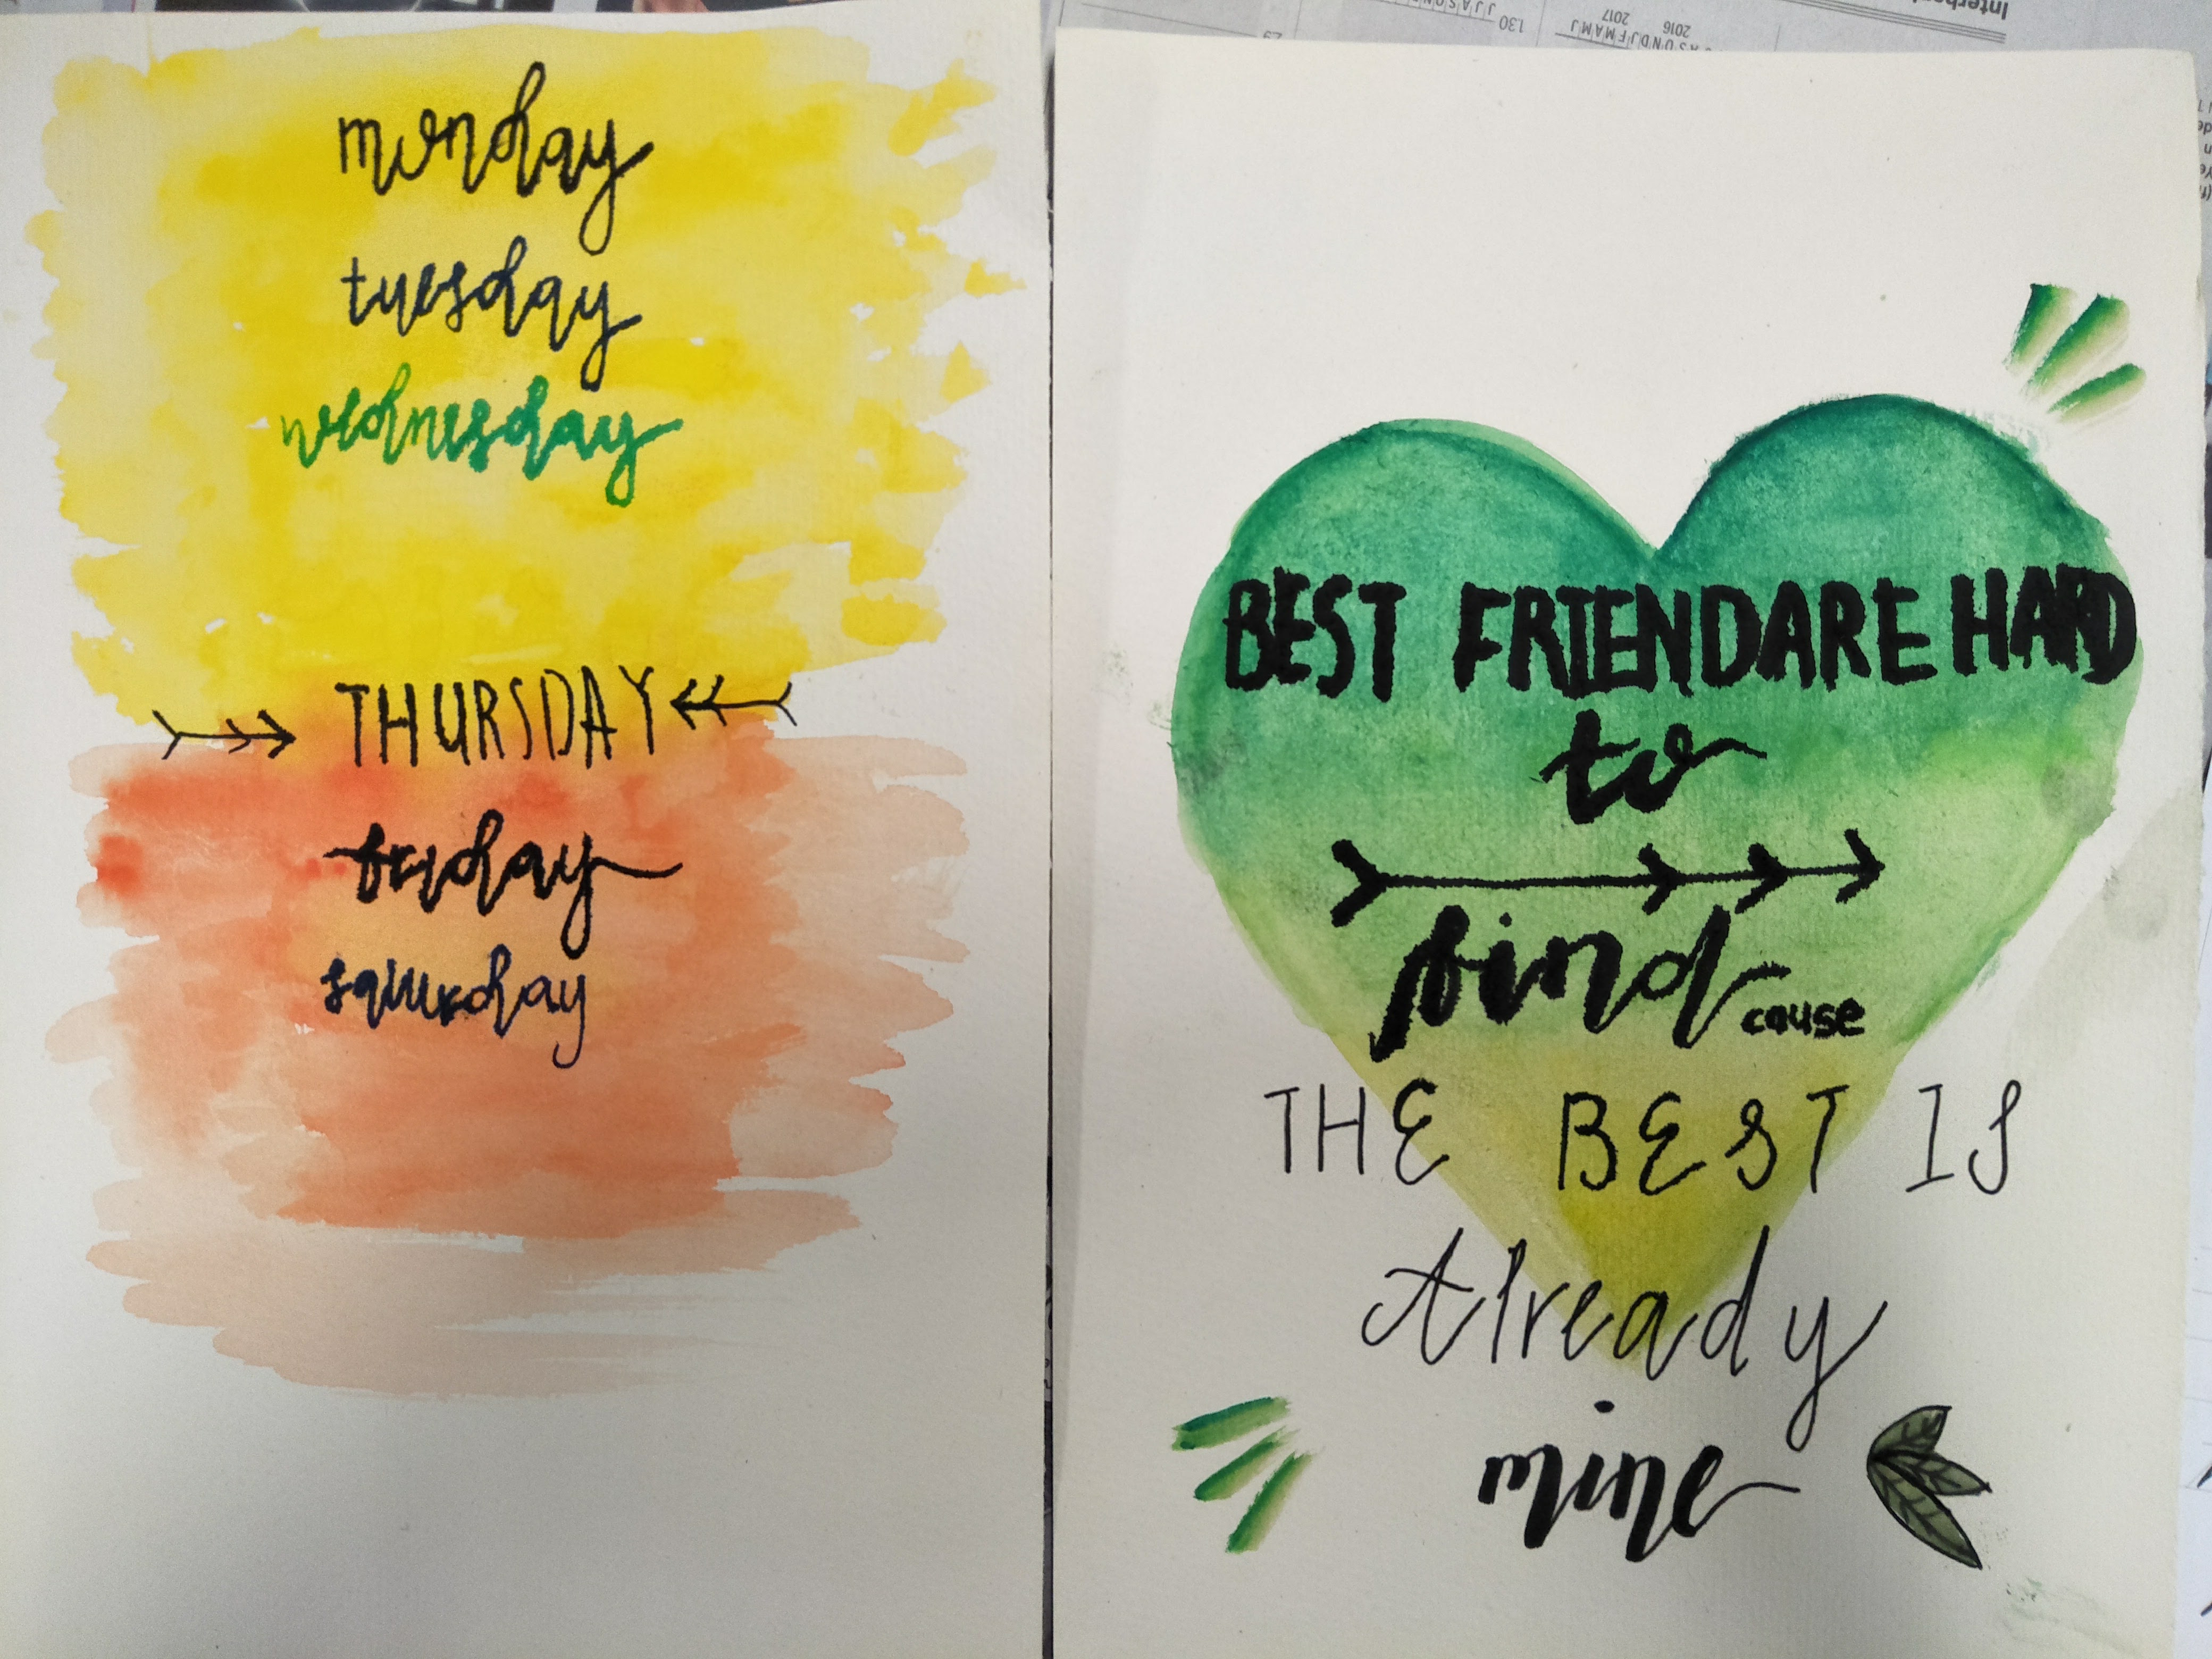 monday
tuesday
wednesday
THURSDAY
friday
saturday
BEST FRIENDARE HARD
to
find
cause
THE BEST IS
Already
mine
130
2016
2017